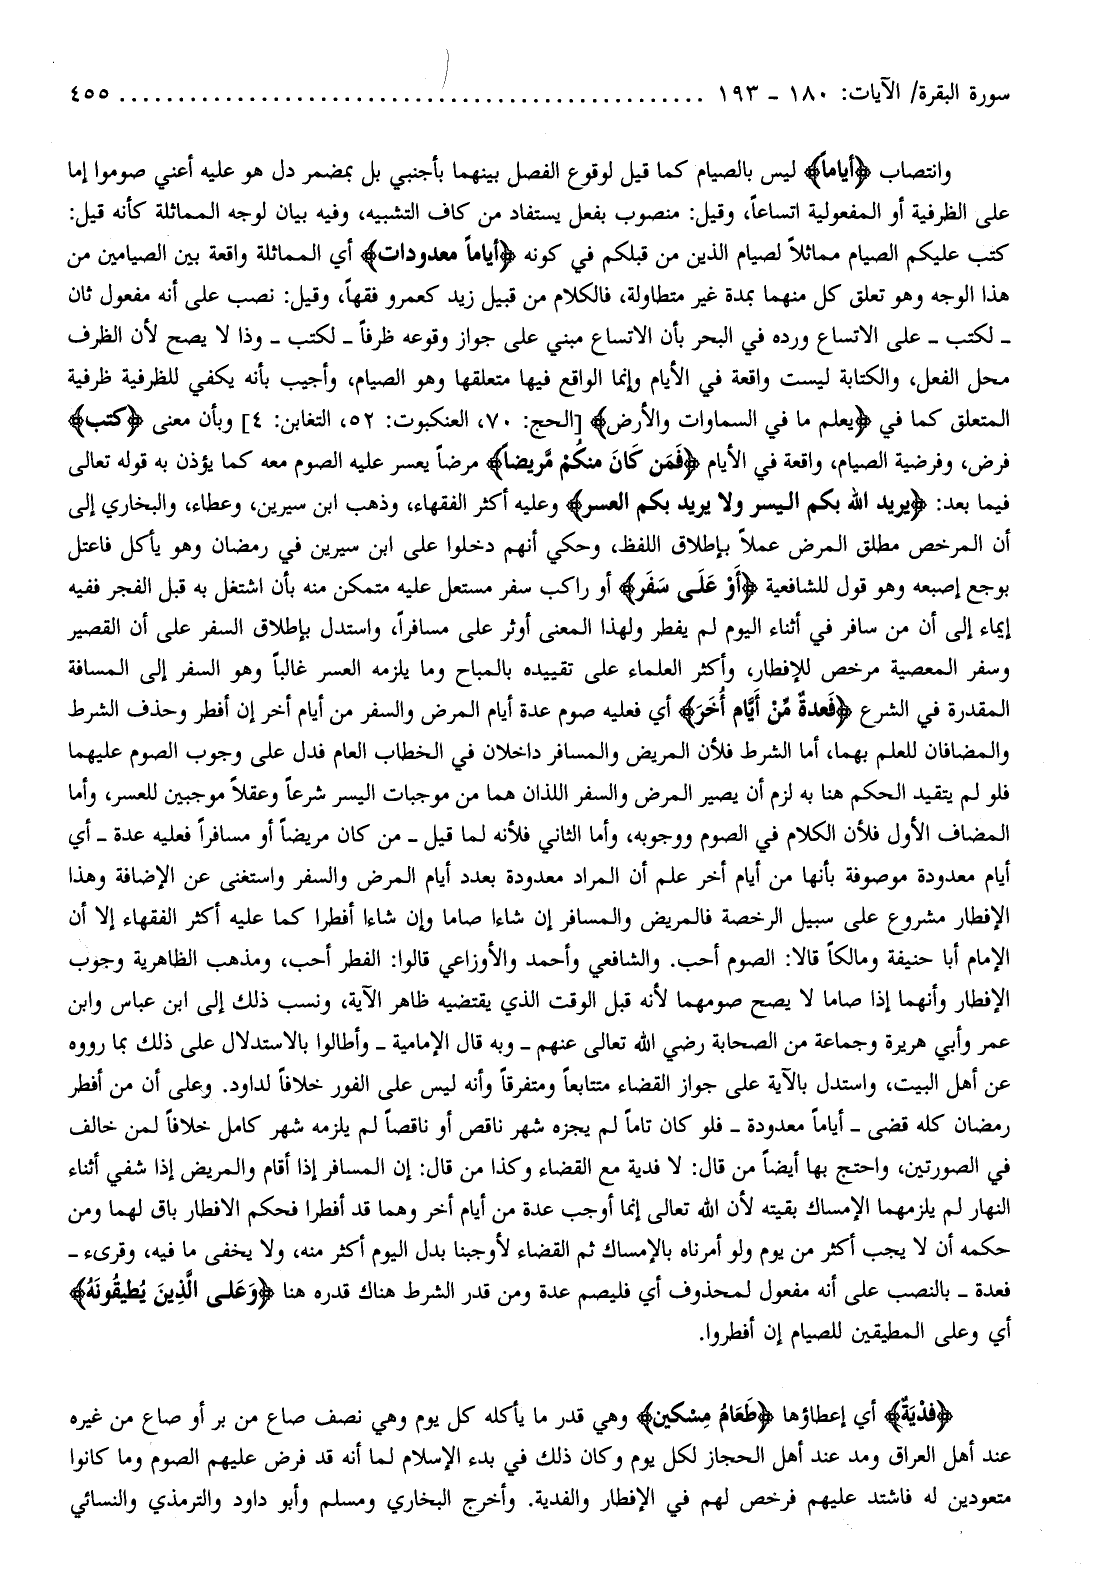 سورة البقرة/ الآيات: ١٨٠ ـ ١٩٣ ................................................ ٤٥٥
وانتصاب ﴿أياماً﴾ ليس بالصيام كما قيل لوقوع الفصل بينهما بأجنبي بل بمضمر دل هو عليه أعني صوموا إما
على الظرفية أو المفعولية اتساعاً، وقيل: منصوب بفعل يستفاد من كاف التشبيه، وفيه بيان لوجه المماثلة كأنه قيل:
كتب عليكم الصيام مماثلاً لصيام الذين من قبلكم في كونه ﴿أياماً معدودات﴾ أي المماثلة واقعة بين الصيامين من
هذا الوجه وهو تعلق كل منهما بمدة غير متطاولة، فالكلام من قبيل زيد كعمرو فقهاً، وقيل: نصب على أنه مفعول ثان
ـ لكتب ـ على الاتساع ورده في البحر بأن الاتساع مبني على جواز وقوعه ظرفاً ـ لكتب ـ وذا لا يصح لأن الظرف
محل الفعل، والكتابة ليست واقعة في الأيام وإنما الواقع فيها متعلقها وهو الصيام، وأجيب بأنه يكفي للظرفية ظرفية
المتعلق كما في ﴿يعلم ما في السماوات والأرض﴾ [الحج: ٧٠، العنكبوت: ٥٢، التغابن: ٤] وبأن معنى ﴿كتب﴾
فرض، وفرضية الصيام، واقعة في الأيام ﴿فَمَن كَانَ منكُمْ مَّريضاً﴾ مرضاً يعسر عليه الصوم معه كما يؤذن به قوله تعالى
فيما بعد: ﴿يريد الله بكم اليسر ولا يريد بكم العسر﴾ وعليه أكثر الفقهاء، وذهب ابن سيرين، وعطاء، والبخاري إلى
أن المرخص مطلق المرض عملاً بإطلاق اللفظ، وحكي أنهم دخلوا على ابن سيرين في رمضان وهو يأكل فاعتل
بوجع إصبعه وهو قول للشافعية ﴿أَوْ عَلَى سَفَر﴾ أو راكب سفر مستعل عليه متمكن منه بأن اشتغل به قبل الفجر ففيه
إيماء إلى أن من سافر في أثناء اليوم لم يفطر ولهذا المعنى أوثر على مسافراً، واستدل بإطلاق السفر على أن القصير
وسفر المعصية مرخص للإفطار، وأكثر العلماء على تقييده بالمباح وما يلزمه العسر غالباً وهو السفر إلى المسافة
المقدرة في الشرع ﴿فَعدةٌ مِّنْ أَيَّام أُخَرَ﴾ أي فعليه صوم عدة أيام المرض والسفر من أيام أخر إن أفطر وحذف الشرط
والمضافان للعلم بهما، أما الشرط فلأن المريض والمسافر داخلان في الخطاب العام فدل على وجوب الصوم عليهما
فلو لم يتقيد الحكم هنا به لزم أن يصير المرض والسفر اللذان هما من موجبات اليسر شرعاً وعقلاً موجبين للعسر، وأما
المضاف الأول فلأن الكلام في الصوم ووجوبه، وأما الثاني فلأنه لما قيل ـ من كان مريضاً أو مسافراً فعليه عدة ـ أي
أيام معدودة موصوفة بأنها من أيام أخر علم أن المراد معدودة بعدد أيام المرض والسفر واستغنى عن الإضافة وهذا
الإفطار مشروع على سبيل الرخصة فالمريض والمسافر إن شاءا صاما وإن شاءا أفطرا كما عليه أكثر الفقهاء إلا أن
الإمام أبا حنيفة ومالكاً قالا: الصوم أحب. والشافعي وأحمد والأوزاعي قالوا: الفطر أحب، ومذهب الظاهرية وجوب
الإفطار وأنهما إذا صاما لا يصح صومهما لأنه قبل الوقت الذي يقتضيه ظاهر الآية، ونسب ذلك إلى ابن عباس وابن
عمر وأبي هريرة وجماعة من الصحابة رضي الله تعالى عنهم ـ وبه قال الإمامية ـ وأطالوا بالاستدلال على ذلك بما رووه
عن أهل البيت، واستدل بالآية على جواز القضاء متتابعاً ومتفرقاً وأنه ليس على الفور خلافاً لداود. وعلى أن من أفطر
رمضان كله قضى ـ أياماً معدودة ـ فلو كان تاماً لم يجزه شهر ناقص أو ناقصاً لم يلزمه شهر كامل خلافاً لمن خالف
في الصورتين، واحتج بها أيضاً من قال: لا فدية مع القضاء وكذا من قال: إن المسافر إذا أقام والمريض إذا شفي أثناء
النهار لم يلزمهما الإمساك بقيته لأن الله تعالى إنما أوجب عدة من أيام أخر وهما قد أفطرا فحكم الافطار باق لهما ومن
حكمه أن لا يجب أكثر من يوم ولو أمرناه بالإمساك ثم القضاء لأوجبنا بدل اليوم أكثر منه، ولا يخفى ما فيه، وقرىء ـ
فعدة ـ بالنصب على أنه مفعول لمحذوف أي فليصم عدة ومن قدر الشرط هناك قدره هنا ﴿وَعَلى الَّذِينَ يُطيقُونَهُ﴾
أي وعلى المطيقين للصيام إن أفطروا.
﴿فدْيَةٌ﴾ أي إعطاؤها ﴿طَعَامُ مِسْكين﴾ وهي قدر ما يأكله كل يوم وهي نصف صاع من بر أو صاع من غيره
عند أهل العراق ومد عند أهل الحجاز لكل يوم وكان ذلك في بدء الإسلام لما أنه قد فرض عليهم الصوم وما كانوا
متعودين له فاشتد عليهم فرخص لهم في الإفطار والفدية. وأخرج البخاري ومسلم وأبو داود والترمذي والنسائي